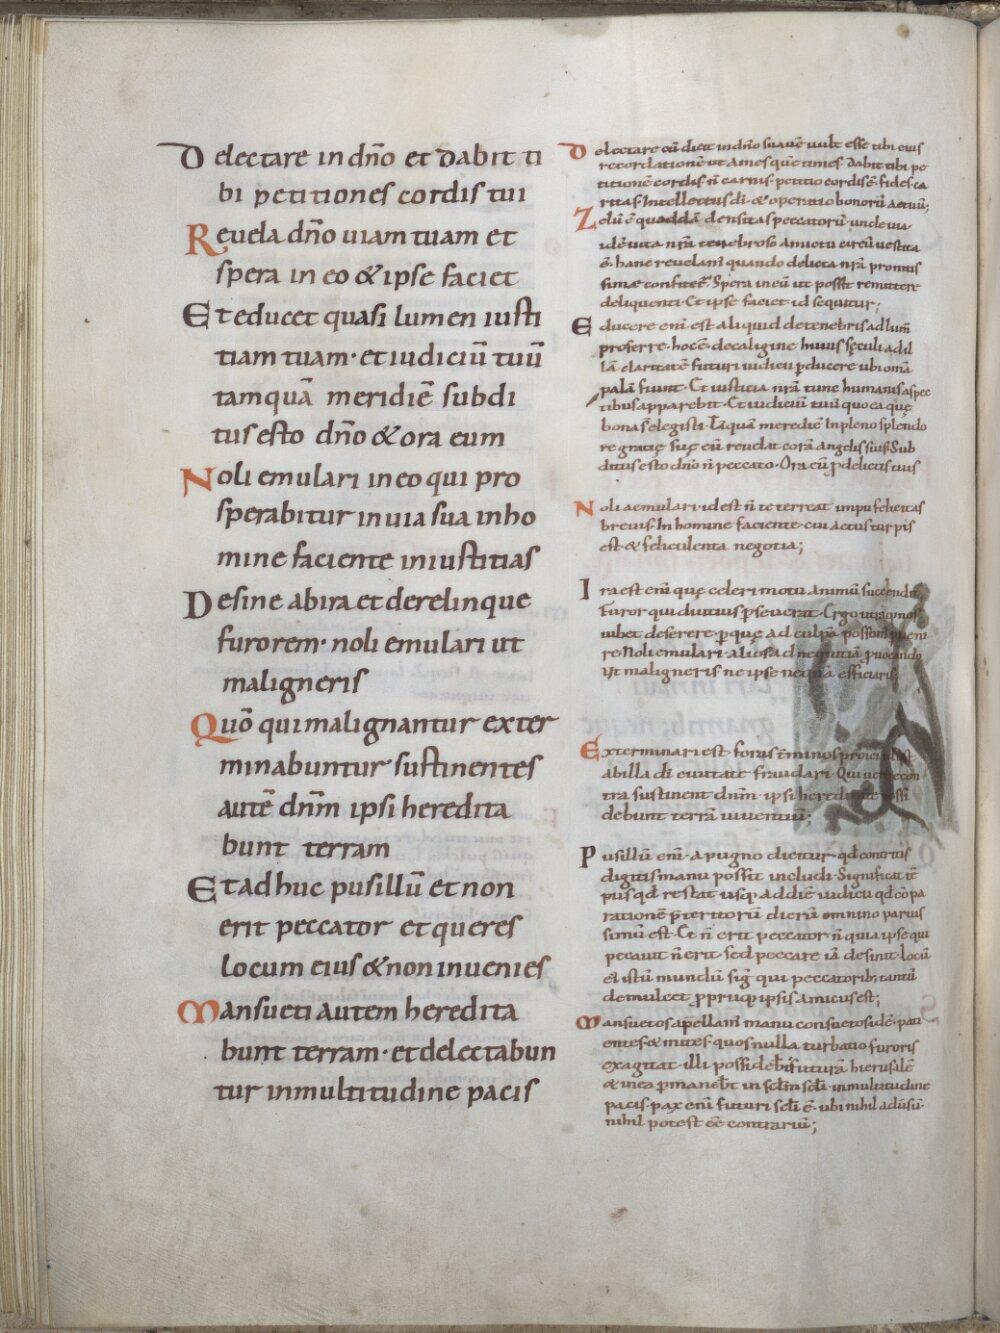 Delectare in dño et dabit ti
bi petitiones cordis tui
Reuela dño uiam tuam et
spera in eo & ipse faciet
Et educet quasi lumen iusti
tiam tuam· et iudiciū tuū
tamquā meridiē subdi
tus esto dño & ora eum
Noli emulari in eo qui pro
sperabitur in uia sua in ho
mine faciente iniustitias
Desine ab ira et derelinque
furorem· noli emulari ut
maligneris
Quō qui malignantur exter
minabuntur sustinentes
autē dñm ipsi heredita
bunt terram
Et adhuc pusillū et non
erit peccator et queres
locum eius & non inuenies
Mansueti autem heredita
bunt terram· et delectabun
tur in multitudine pacis
Delectare cū dicit in dño suauē uult esse tibi eius
recordationē ut ames quē times· dabit tibi pe
titionē cordis ñ carnis· petitio cordis ē· fides ca
ritas· Intellectus di· & operatio bonorū actuū;
Zelū ē quoddā densitas peccatorū unde
uita nrā tenebroso amictu circū uestita
ē· hanc reuelam quando delicta nrā
Spera in eū ut possit remittere
deliquenti· Et ipse faciet id sequitur;
Educere eni est aliquid de tenebris ad lum
proferre· hoc ē de caligine huius sęculi ad il
lā claritatē futuri iudicii pducere ubi omā
palā fiunt· Et iusticia nrā tunc humanis aspec
tibus apparebit· Et iudiciū tuū quo ea quę
bona s elegisti· Tāquā meredie In pleno splendo
re gratię suę cū reuelat corā angelis suis· Sub
ditus esto dño ñ peccato· Ora eū p delictis tuis
Noli aemulari· id est ñ te terreat impii felicitas
breuis· In homine faciente· cui actus turpis
est· & fediculenta negotia;
Ira est eni quę celeri motu animū succendit
furor qui diutius pseuerat· Ergo utraq; nos
iubet deserere· p quę ad culpā possim pueni
re· Noli emulari· alios ad nequitiā puocando
Ut maligneris ne ipse nequā efficiaris
Exterminari est foras terminos proici id est
ab illa di ciuitate fraudari· Qui uero econ
tra sustinent dnm· ipsi hereditate possi
debunt terrā uiuentiū;
Pusillū eni a pugno dicitur· qd contritis
digitis manu possit includi· Significat tē
pus qd restat usq; ad diē iudicii qd cōpa
ratione pteritorū dierū omnino paruis
simū est· Et ñ erit peccator ñ quia ipse qui
peccauit ñ erit· sed peccare iā desinit· locū
ei istū mundū sig̃ qui peccatorib; tantū
demulcet p prius ipsis amicus est;
Mansuetos apellam manu consuetos id ē· pati
entes & mites· quos nulla turbatio furoris
exagitat· illi possidebt futurā hierusalē
& in ea pmanebt in sclm scli· in multitudine
pacis· pax eni futuri scli ē· ubi nihil aduersū
nihil potest eē contrariū;